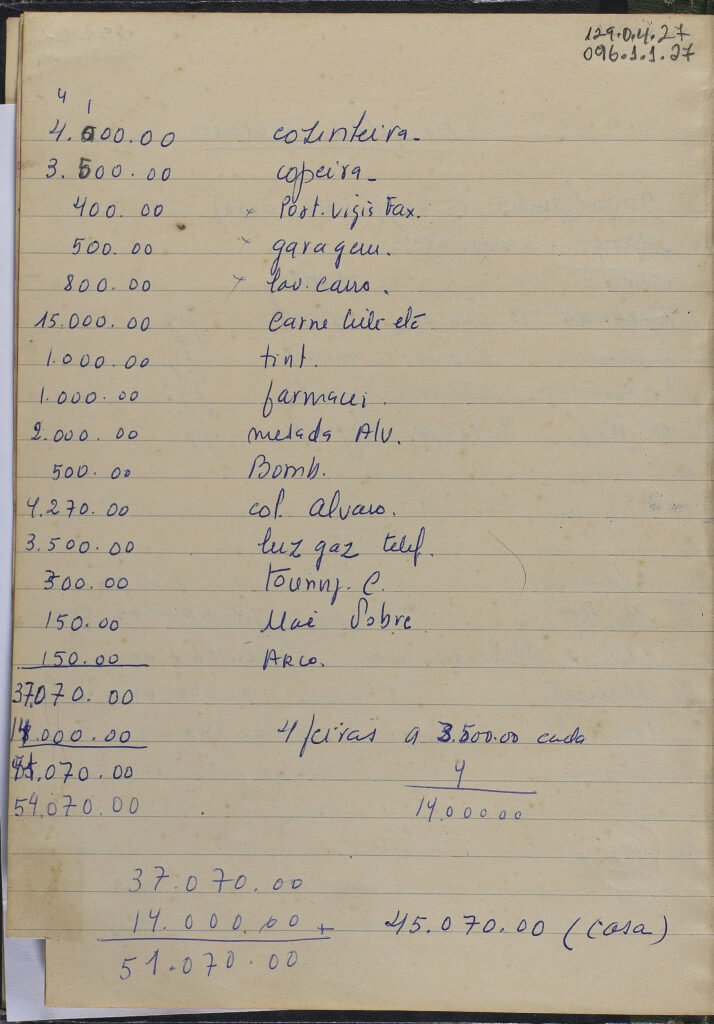 129.0.4.27
096.1.1.27
4 1
4.000.00 cozinteira_
3.500.00 copeira_
400.00 x Port. vigis Fax.
500.00 x garagem.
800.00 x lav. carro.
15.000.00 Carne leite etc
1.000.00 tint.
1.000.00 farmaci.
2.000.00 mesada Alv.
500.00 Bomb.
4.270.00 col. Alvaro.
3.500.00 luz gaz telef.
300.00 C.
150.00 Mãe Pobre
150.00 Arco.
37.070.00
14.000.00 4 feiras a 3.500.00 cada
.070.00 4
54.070.00 14.000.00
37.070.00
14.000.00 + 45.070.00 (casa)
51.070.00